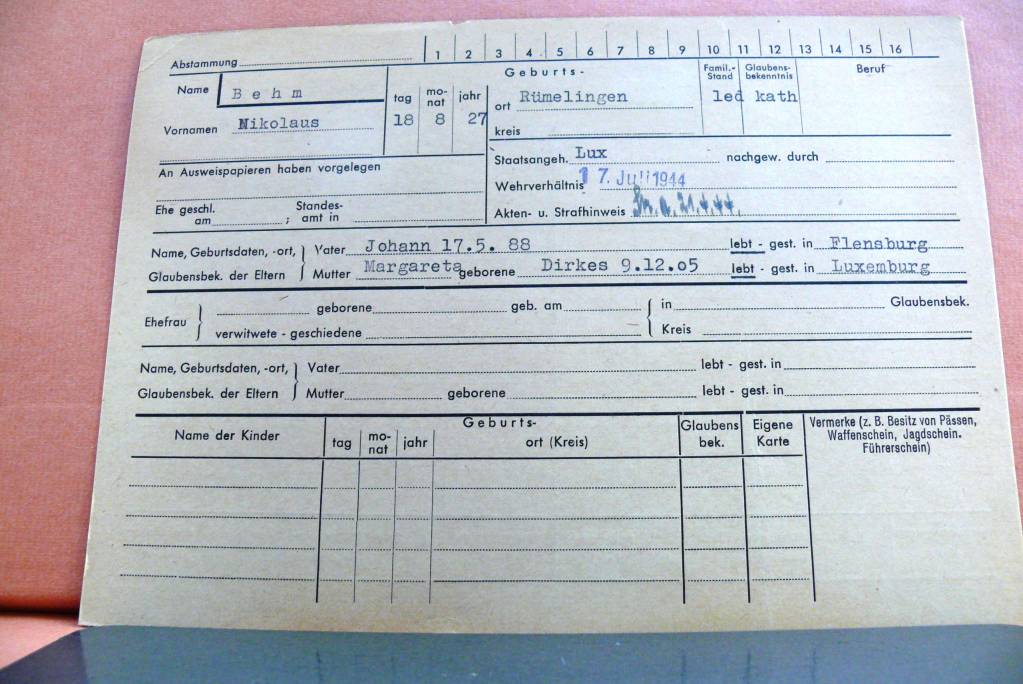 Abstammung 1 2 3 4 5 6 7 8 9 10 11 12 13 14 15 16
Name Behm
Vornamen Nikolaus
Geburts-
tag mo-nat jahr
18 8 27
ort Rümelingen
kreis
Famil.-Stand
led
Glaubens-bekenntnis
kath
Beruf
An Ausweispapieren haben vorgelegen
Ehe geschl. am ; Standes-amt in
Staatsangeh. Lux nachgew. durch
Wehrverhältnis 17. Juli 1944
Akten- u. Strafhinweis
Name, Geburtsdaten, -ort, Vater Johann 17.5. 88 lebt - gest. in Flensburg
Glaubensbek. der Eltern Mutter Margareta geborene Dirkes 9.12.05 lebt - gest. in Luxemburg
Ehefrau geborene geb. am in Glaubensbek.
verwitwete - geschiedene Kreis
Name, Geburtsdaten, -ort, Vater lebt - gest. in
Glaubensbek. der Eltern Mutter geborene lebt - gest. in
Name der Kinder
Geburts-
tag mo-nat jahr ort (Kreis)
Glaubens bek.
Eigene Karte
Vermerke (z. B. Besitz von Pässen,
Waffenschein, Jagdschein.
Führerschein)